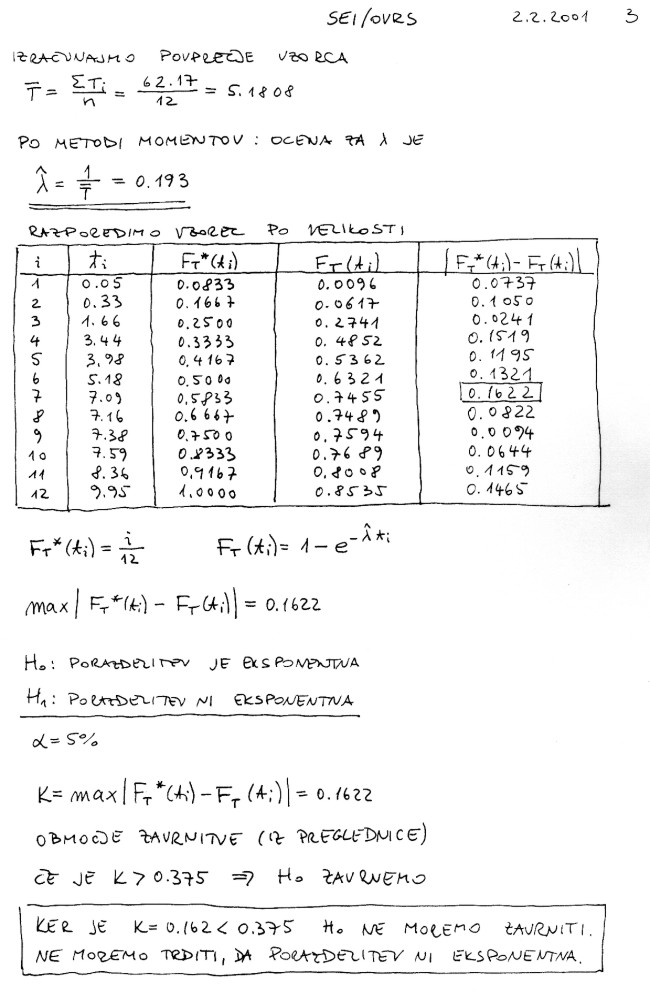 SEI/OVRS 2.2.2001 3
IZRAČUNAJMO POVPREČJE VZORCA
T̄ = ΣTi/n = 62.17/12 = 5.1808
PO METODI MOMENTOV : OCENA ZA λ JE
λ̂ = 1/T̄ = 0.193
RAZPOREDIMO VZOREC PO VELIKOSTI
i ti FT*(ti) FT(ti) |FT*(ti) - FT(ti)|
1 0.05 0.0833 0.0096 0.0737
2 0.33 0.1667 0.0617 0.1050
3 1.66 0.2500 0.2741 0.0241
4 3.44 0.3333 0.4852 0.1519
5 3,98 0,4167 0.5362 0.1195
6 5.18 0.5000 0.6321 0.1321
7 7.09 0,5833 0.7455 0.1622
8 7.16 0.6667 0.7489 0.0822
9 7.38 0,7500 0,7594 0.0094
10 7.59 0.8333 0,7689 0.0644
11 8.36 0,9167 0,8008 0.1159
12 9,95 1,0000 0.8535 0.1465
FT*(ti) = i/12 FT(ti) = 1 - e^-λ̂ti
max|FT*(ti) - FT(ti)| = 0.1622
H0: PORAZDELITEV JE EKSPONENTNA
H1: PORAZDELITEV NI EKSPONENTNA
α = 5%
K = max|FT*(ti) - FT(ti)| = 0.1622
OBMOČJE ZAVRNITVE (IZ PREGLEDNICE)
ČE JE K > 0.375 ⇒ H0 ZAVRNEMO
KER JE K = 0.162 < 0.375 H0 NE MOREMO ZAVRNITI.
NE MOREMO TRDITI, DA PORAZDELITEV NI EKSPONENTNA.